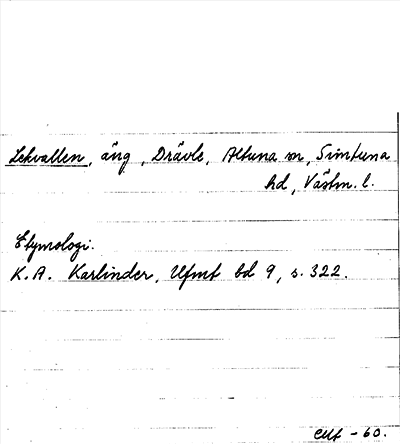 Lekvallen, äng, Drävle, Altuna sn, Simtuna
hd, Västm. l.
Etymologi.
K.A. Karlinder, Ufmt bd 9, s. 322.
-60.